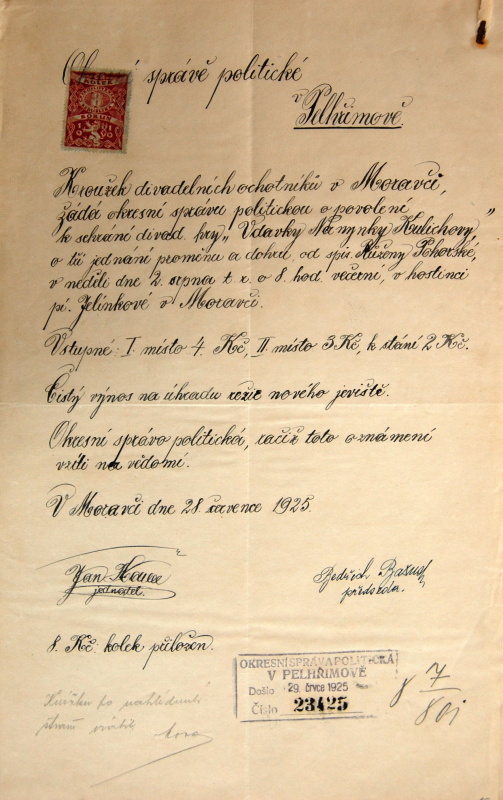 správě politické
v Pelhřimově.
KOLEK
KORUN
Kroužek divadelních ochotníků v Moravči,
žádá okresní správu politickou o povolení
k sehrání divad. hry „Vdavky Nanynky Kulichovy"
o tří jednání proměnu a dohru, od spis. Růženy Pohorské,
v neděli dne 2. srpna t. r. o 8. hod. večerní, v hostinci
pí. Jelínkové v Moravči.
Vstupné: I. místo 4. Kč, II místo 3 Kč, k stání 2 Kč.
Čistý výnos na úhradu režie nového jeviště.
Okresní správo politická, račiž toto oznámení
vzíti na vědomí.
V Moravči dne 28. července 1925.
Jan
jednatel.
Bedřich
předseda.
8. Kč. kolek přiložen.
OKRESNÍ SPRÁVA POLITICKÁ
V PELHŘIMOVĚ
Došlo 29. črvce 1925
Číslo 23425
Knížka po nahlédnutí
8 7